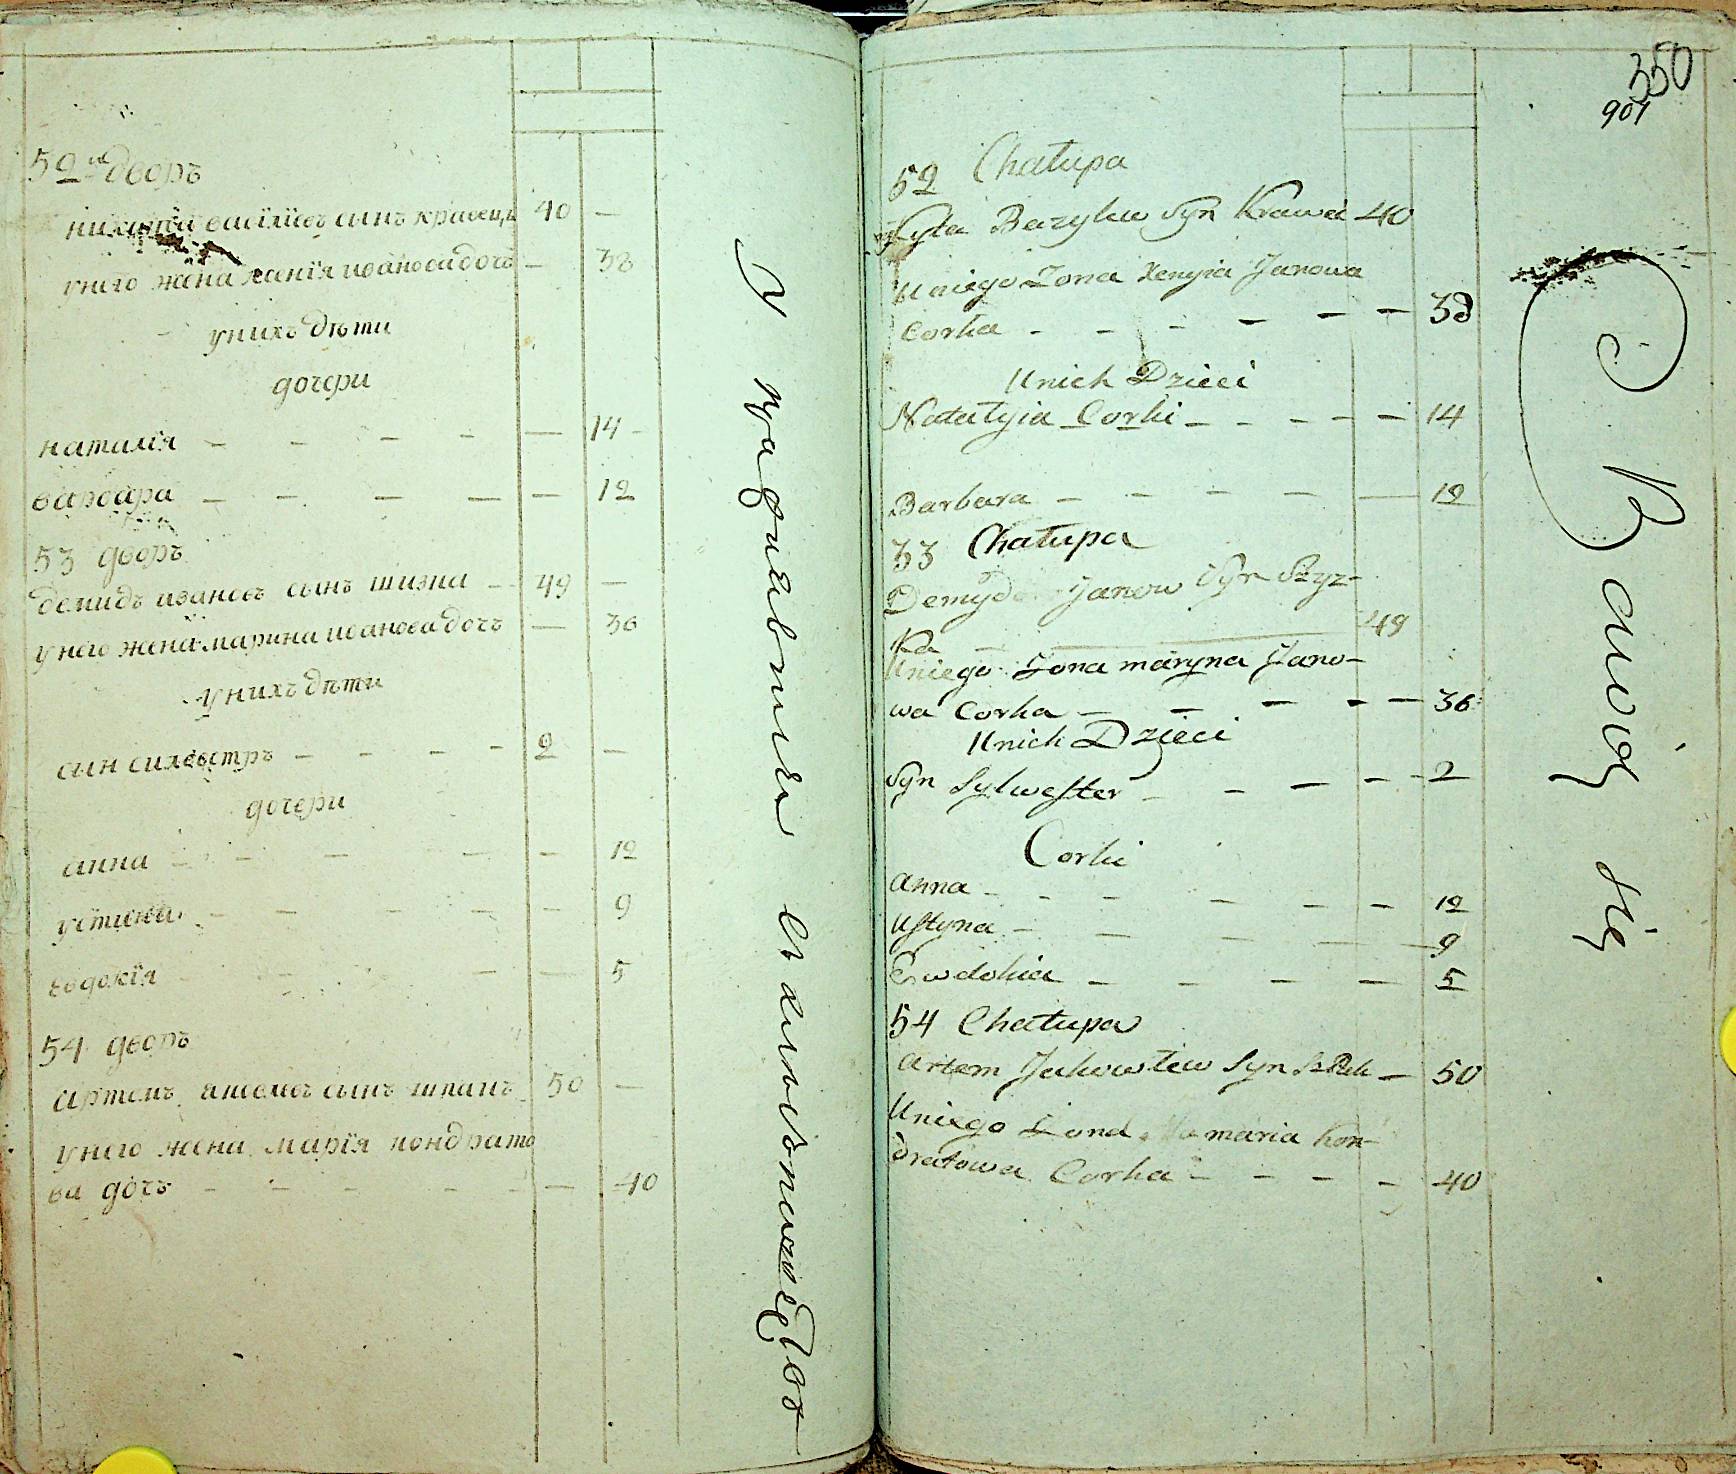 52й дворъ
никита василиевъ сынъ кравецъ 40 —
у него жена ксенїя иванова дочъ — 38
у нихъ дѣти
дочери
наталїя — — — — — 14 -
варвара — — — — — 12
53 дворъ
демидъ ивановъ сынъ шизка — 49 —
у него жена марина иванова дочъ — 36
у нихъ дѣти
сын силвестръ — — — — 2 —
дочери
анна — — — — — 12
устина — — — — — 9
евдокїя — — — 5
54 дворъ
артемъ сынъ шпакъ 50 —
у него жена марїя кондрато
ва дочъ — — — — — — 40
350
901
52 Chałupa
Kyta Bazylew Syn Krawec 40
U niego Zona Xenyia Janowa
Corka — — — — — — 38
U nich Dzieci
Natalyia Corki — — — — — 14
Barbara — — — — — 12
53 Chałupa
Demyd Janow Syn Szyz-
ka — 49
U niego Zona maryna Jano-
wa Corka — — — — — 36
U nich Dzieci
Syn Sylwester — — — — — 2
Corki
anna — — — — — — 12
Ustyna — — — — — 9
Ewdokia — — — — 5
54 Chałupa
artem Jakowlew Syn Szpak — 50
U niego Zona maria Kon-
dratowa Corka — — — — 40
Bawią się